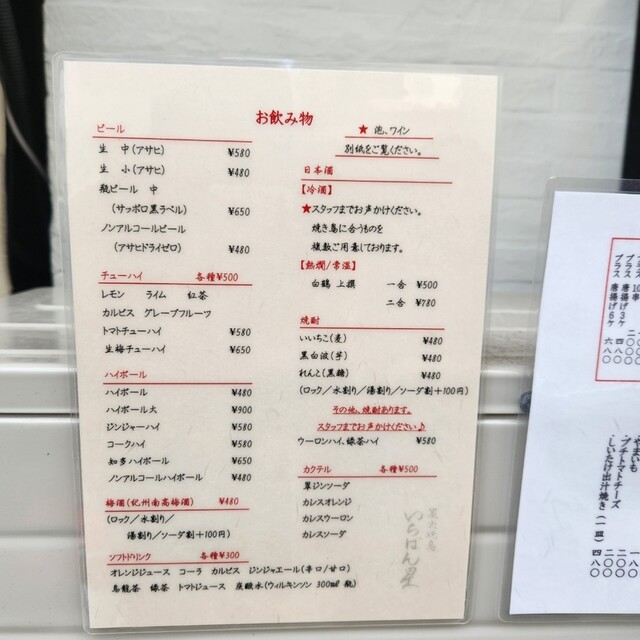 お飲み物
ビール
生 中(アサヒ) ¥580
生 小(アサヒ) ¥480
瓶ビール 中
(サッポロ黒ラベル) ¥650
ノンアルコールビール
(アサヒドライゼロ) ¥480
チューハイ 各種¥500
レモン ライム 紅茶
カルピス グレープフルーツ
トマトチューハイ ¥580
生梅チューハイ ¥650
ハイボール
ハイボール ¥480
ハイボール大 ¥900
ジンジャーハイ ¥580
コークハイ ¥580
知多ハイボール ¥650
ノンアルコールハイボール ¥480
梅酒(紀州南高梅酒) ¥480
(ロック/水割り/
湯割り/ソーダ割+100円)
ソフトドリンク 各種¥300
オレンジジュース コーラ カルピス ジンジャエール(辛口/甘口)
烏龍茶 緑茶 トマトジュース 炭酸水(ウィルキンソン 300ml 瓶)
★ 泡、ワイン
別紙をご覧ください。
日本酒
【冷酒】
★スタッフまでお声かけください。
焼き鳥に合うものを
複数ご用意しております。
【熱燗/常温】
白鶴 上撰 一合 ¥500
二合 ¥780
焼酎
いいちこ(麦) ¥480
黒白波(芋) ¥480
れんと(黒糖) ¥480
(ロック/水割り/湯割り/ソーダ割+100円)
その他、焼酎あります。
スタッフまでお声かけください♪
ウーロンハイ、緑茶ハイ ¥580
カクテル 各種¥500
翠ジンソーダ
カシスオレンジ
カシスウーロン
カシスソーダ
いちばん星
プラス 唐揚げ3ケ
プラス 唐揚げ6ケ 六八〇
やまいも
プチトマトチーズ
しいたけ出汁焼き(一皿) 四八〇